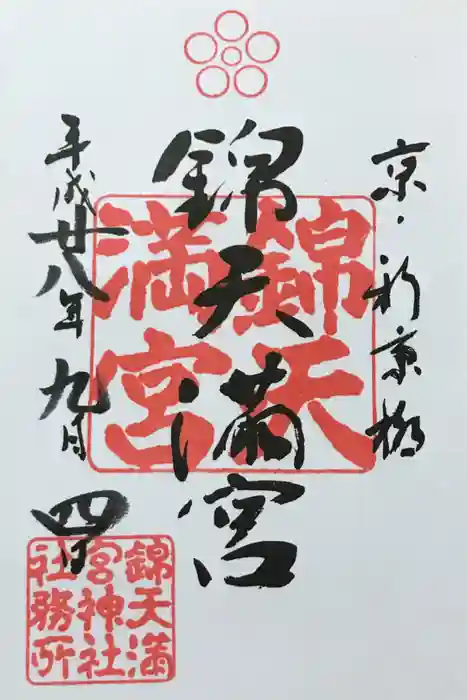 京・新京極
錦天満宮
平成廿八年九月四日
錦天
満宮
錦天満
宮神社
社務所